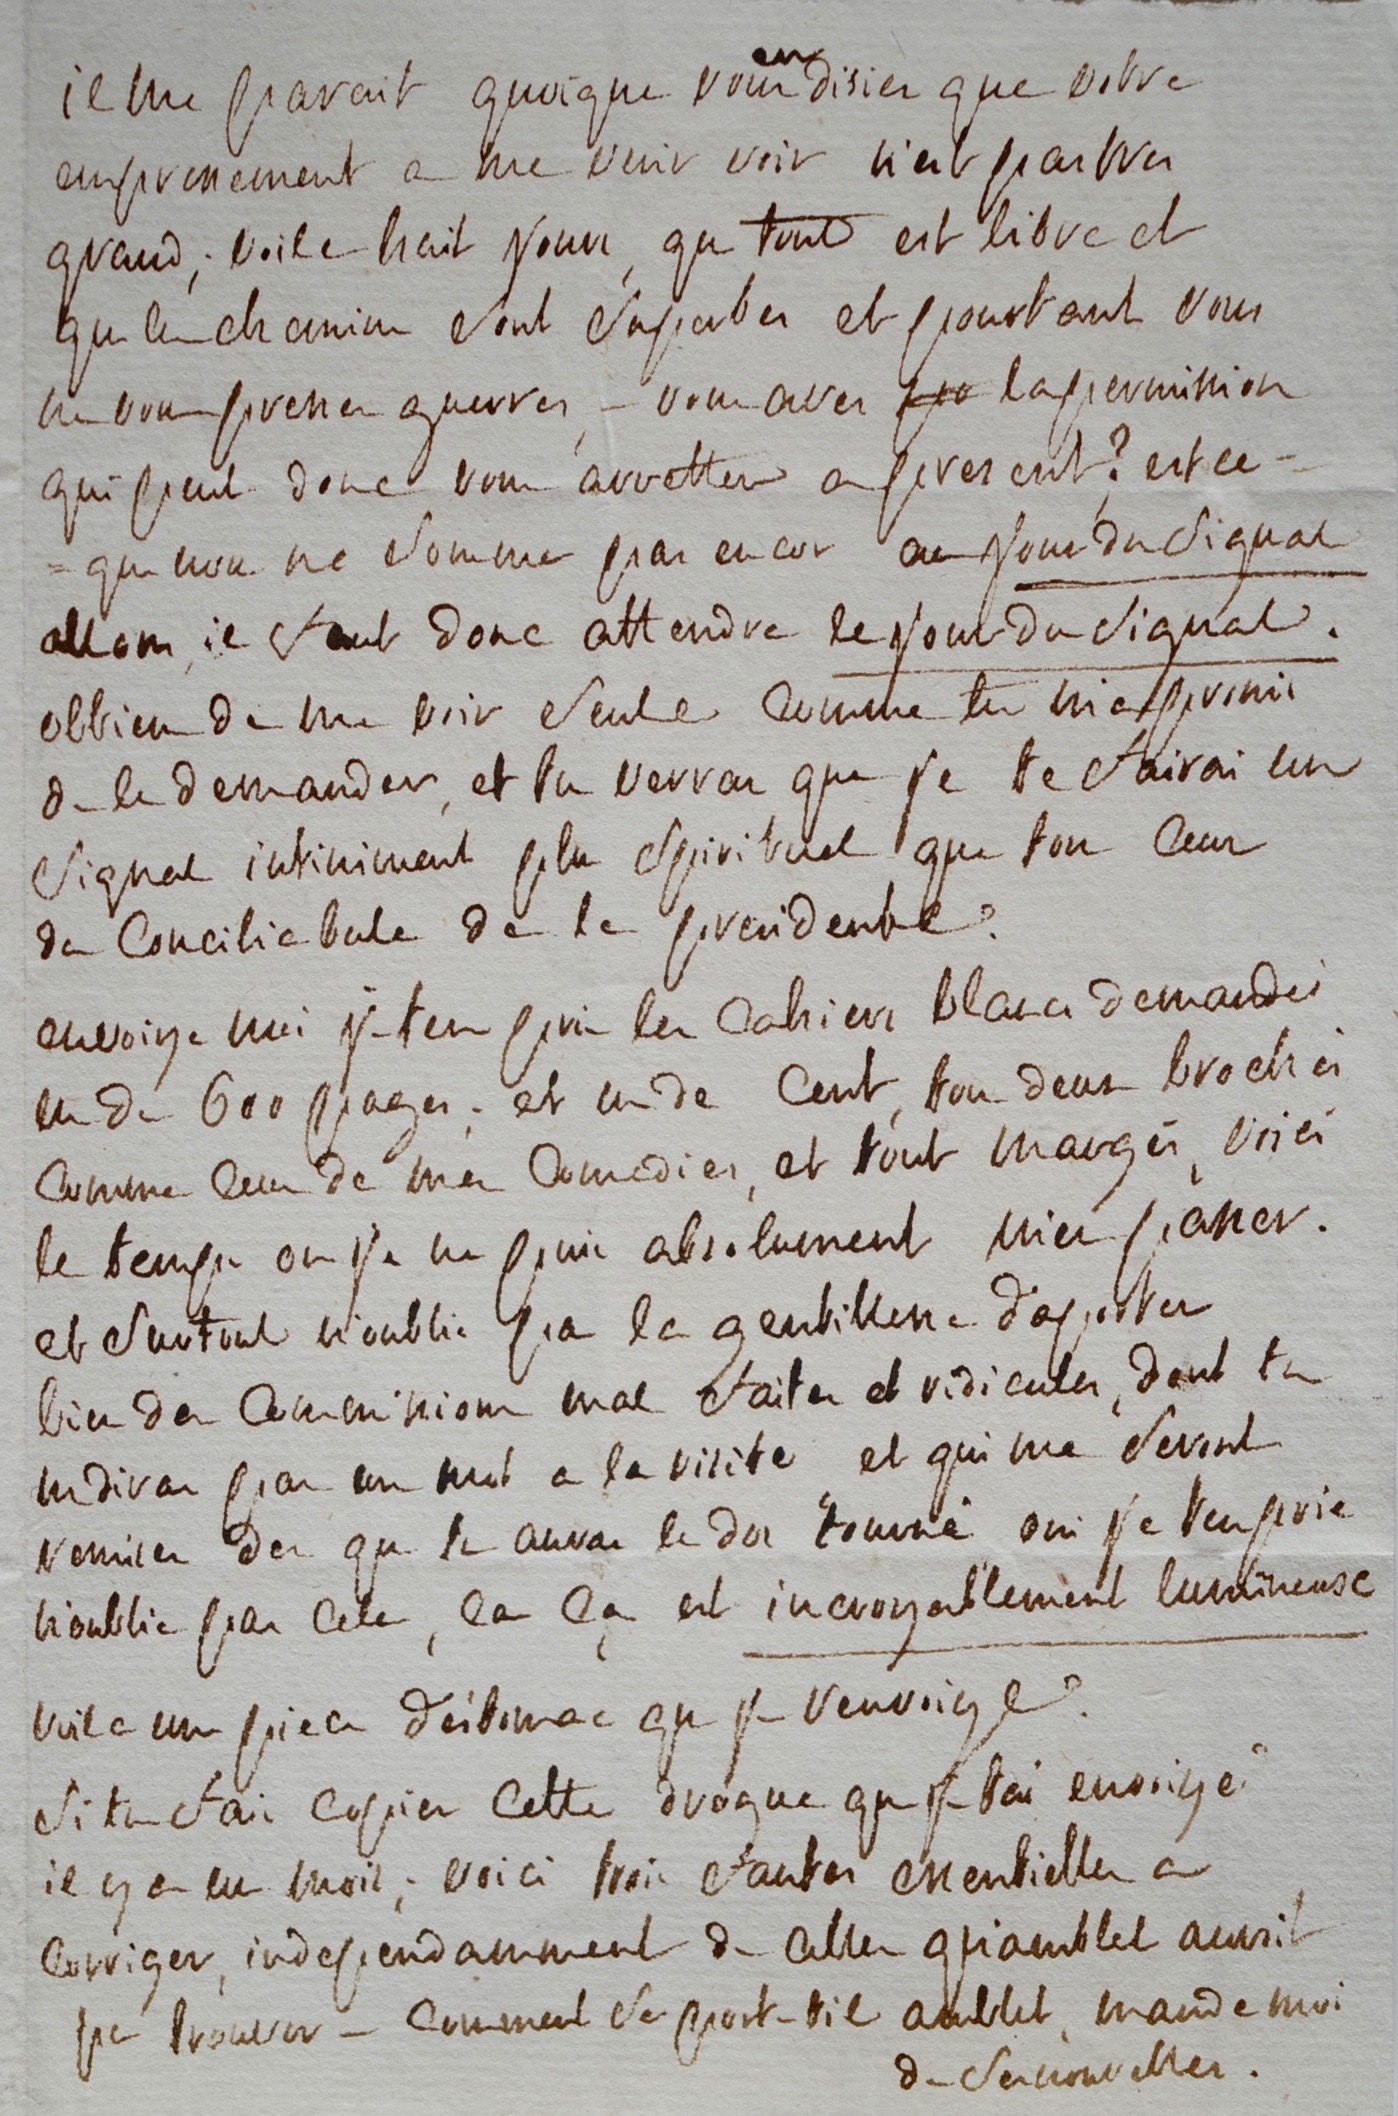 il me parait quoique vous en disies que votre
empressement a me venir voir n'est pas tres
grand, voila huit jours, que tout est libre et
que les chemins sont superbes et pourtant vous
ne vous presses guerres, – vous aves la permission
qui peut donc vous arretter a present? est ce –
= que nous ne sommes pas encor au jour du signal
allons, il faut donc attendre le jour du signal.
obtiens de me voir seule comme tu m'as promis
de le demander, et tu verras que je te fairai un
signal infiniment plus spirituel que ton ceux
du conciliabule de la presidente.
envoiye moi je t'en prie les cahiers blancs demandés
un de 600 pages. et un de cent, tous deux brochés
comme ceux de mes comedies, et tout margés, voici
le temps ou je ne puis absolument m'en passer.
et surtout n'oublie pas la gentillesse d'apporter
bien des commissions mal faites et ridicules, dont tu
ne diras pas un mot a la visite et qui me seront
remises des que tu auras le dos tourné oui je t'en prie
n'oublie pas cela, ca ça est incroyablement lumineuse
voila une piece d'estomac que je renvoiye.
si tu fais copier cette drogue que je t'ai envoiyé
il y a un mois, voici trois fautes essentielles a
corriger, independamment de celles qu'amblet auroit
pu trouver – comment se port-t-il amblet, mande moi
de ses nouvelles.